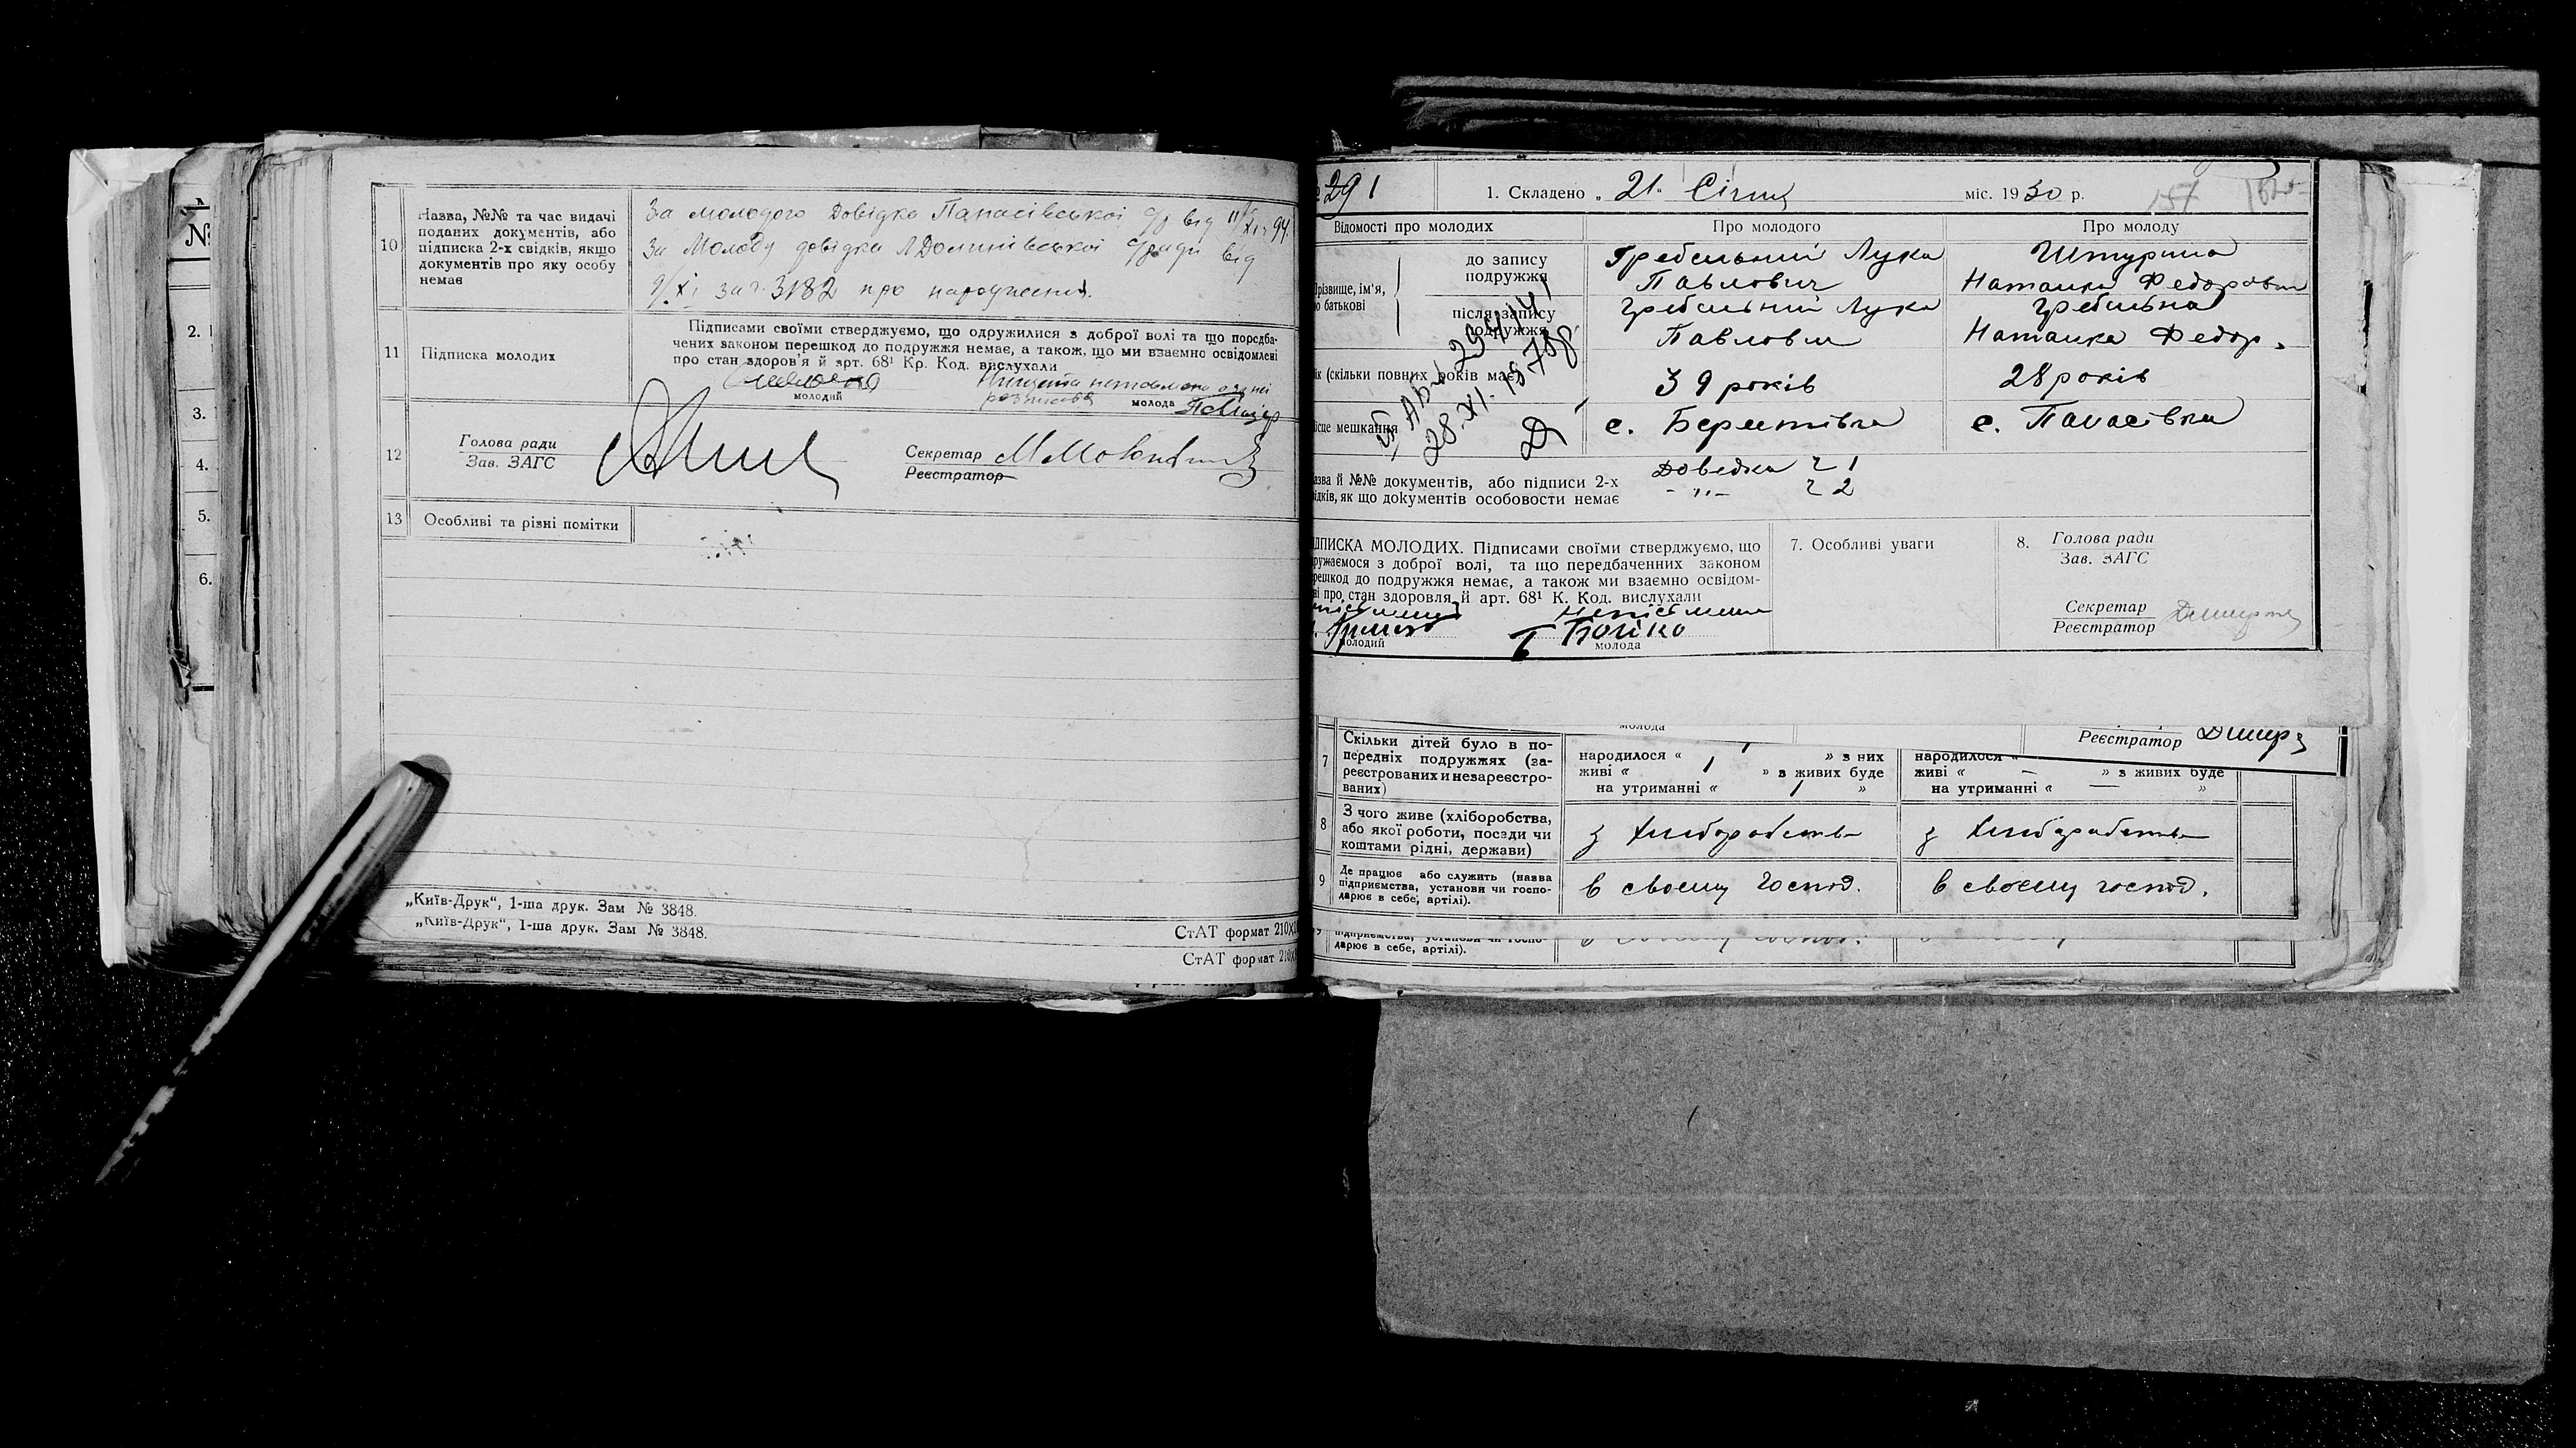 №
2.
3.
4.
5.
6.
10 Назва, №№ та час видачі
поданих документів, або
підписка 2-х свідків, якщо
документів про яку особу
немає
За молодого Довідка Панасівської с/р від 11/XI
За Молоду довідка с/ради від
9/XI за ч. 3182 про народження.
11 Підписка молодих
Підписами своїми стверджуємо, що одружилися з доброї волі та що передба-
чених законом перешкод до подружжя немає, а також, що ми взаємно освідомлені
про стан здоров'я й арт. 68¹ Кр. Код. вислухали
молодий
молода
12 Голова ради
Зав. ЗАГС
Секретар
Реєстратор
13 Особливі та різні помітки
„Київ-Друк“, 1-ша друк. Зам № 3848.
СтАТ формат 210Х
„Київ-Друк“, 1-ша друк. Зам № 3848.
СтАТ формат 210
291
1. Складено „ 21 “ Січня міс. 1930 р.
157
Відомості про молодих
Про молодого
Про молоду
прізвище, ім'я,
по батькові
до запису
подружжя
Гребельний Лука
Павлович
Штурина
Наталка Федоровна
після запису
подружжя
Гребельний Лука
Павлович
Гребельна
Наталка Федор.
ік (скільки повних років має)
39 років
28 років
28.XI.1978р.
ісце мешкання
с. Берестівка
с. Панасівка
азва й №№ документів, або підписи 2-х
ідків, як що документів особовости немає
Доведка ч 1
- „ - ч 2
ДПИСКА МОЛОДИХ. Підписами своїми стверджуємо, що
ружаємося з доброї волі, та що передбаченних законом
решкод до подружжя немає, а також ми взаємно освідом-
ні про стан здоровля й арт. 68¹ К. Код. вислухали
неписьменна
Бойко
молодий
молода
7. Особливі уваги
8. Голова ради
Зав. ЗАГС
Секретар
Реєстратор
молода
Реєстратор
7 Скільки дітей було в по-
передніх подружжях (за-
реєстрованих и незареєстро-
ваних)
народилося « 1 » з них
живі « 1 » з живих буде
на утриманні « 1 »
народилося «
живі « — » з живих буде
на утриманні « — »
8 З чого живе (хліборобства,
або якої роботи, посади чи
коштами рідні, держави)
з хліборобства
з хліборобства
9 Де працює або служить (назва
підприємства, установи чи госпо-
дарює в себе, артілі).
в своему господ.
в своему господ.
9 підприємства, установи чи госпо-
дарює в себе, артілі).